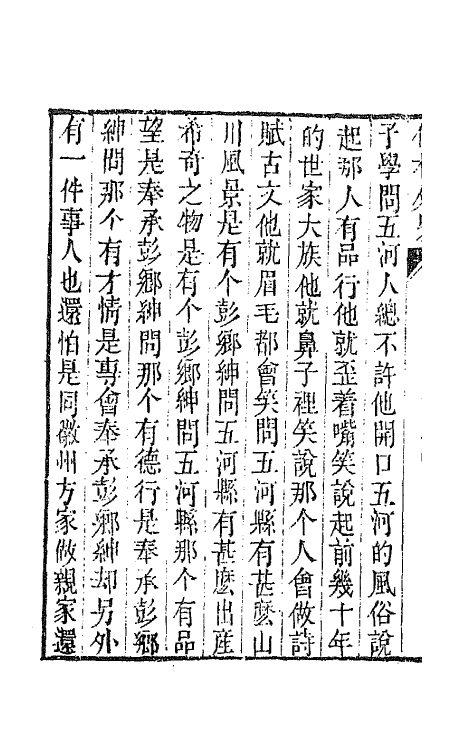 子學問五河人總不許他開口五河的風俗說
起那人有品行他就歪着嘴笑說起前幾十年
的世家大族他就鼻子裡笑說那个人會做詩
賦古文他就眉毛都會笑問五河縣有甚麽山
川風景是有个彭鄉紳問五河縣有甚麽出産
希奇之物是有个彭鄉紳問五河縣那个有品
望是奉承彭鄉紳問那个有德行是奉承彭鄉
紳問那个有才情是專會奉承彭鄉紳却另外
有一件事人也還怕是同徽州方家做親家還